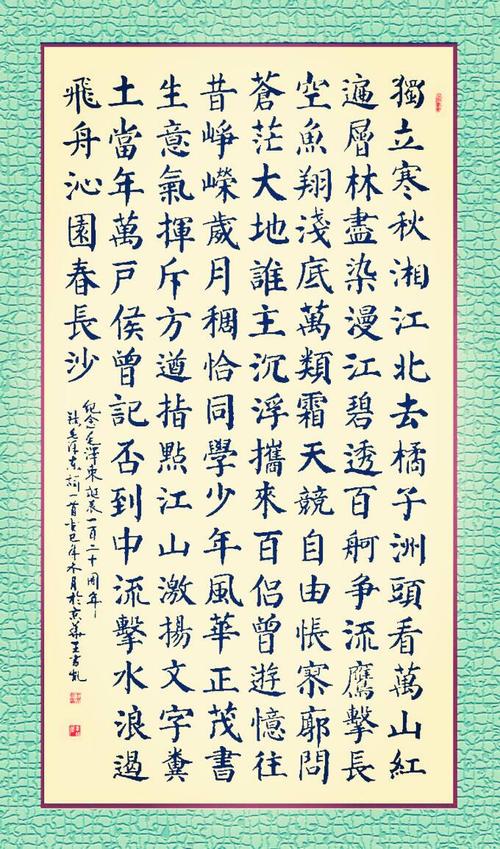 獨立寒秋湘江北去橘子洲頭看萬山紅
遍層林盡染漫江碧透百舸争流鷹擊長
空魚翔淺底萬類霜天競自由悵寥廓問
蒼茫大地誰主沉浮攜來百侶曾遊憶往
昔崢嶸歲月稠恰同學少年風華正茂書
生意氣揮斥方遒指點江山激揚文字糞
土當年萬户侯曾記否到中流擊水浪遏
飛舟沁園春長沙
紀念毛澤東誕辰一百二十周年
毛澤東詞一首